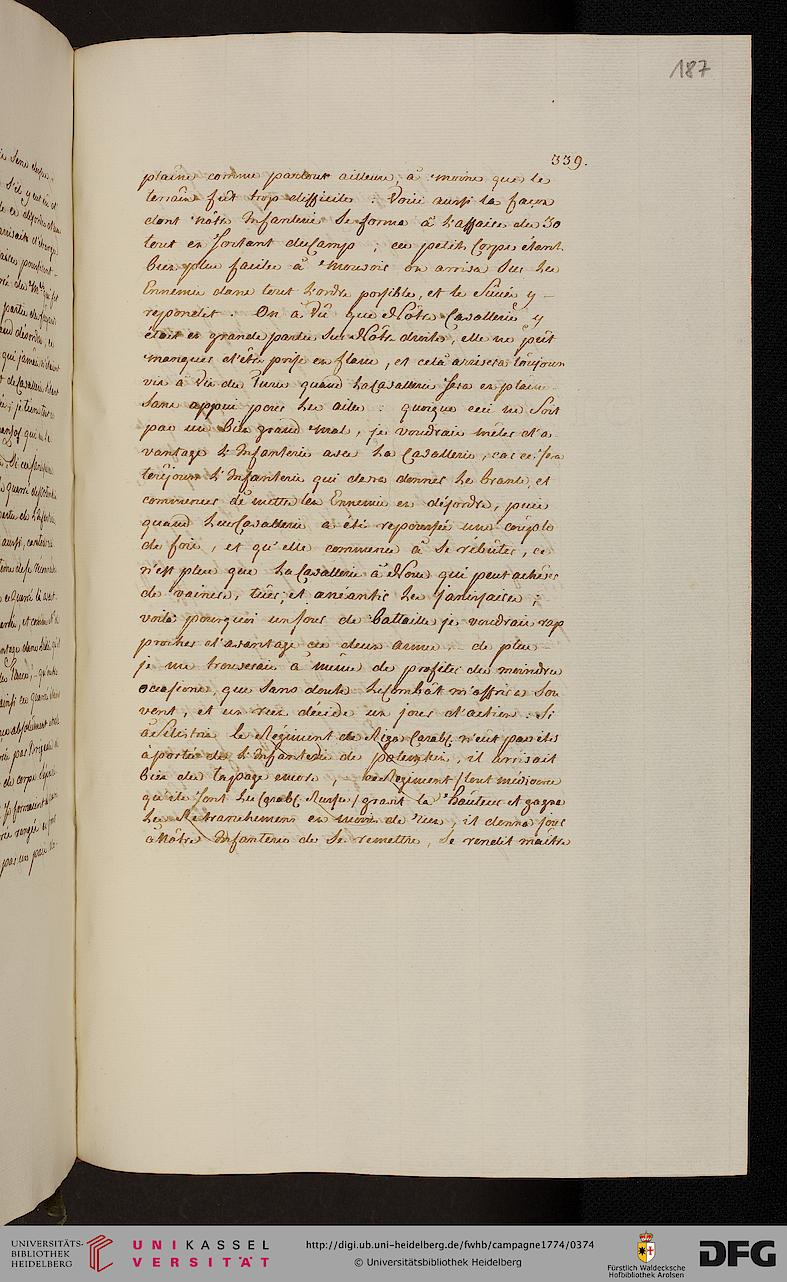 187
339.
plaine comme partout ailleurs, à moins que le
terrain fut trop difficile : Voici aussi la façon
dont nôtre Infanterie se forma à l'affaire du 30
tout en sortant du Camp ; ces petits Corps étant
bien plus faciles à mouvoir on arriva sur les
Ennemis dans tout l'ordre possible, et le Succès y
repondit. On a Vû que Nôtre Cavallerie y
étoit en grande partie sur Nôtre droite, elle ne peut
manquer d'être prise en flanc, et celà arrivera toujours
vis à Vis du Turc quand la Cavallerie sera en plaine
sans appui pour les ailes : quoique ceci ne soit
pas un bien grand mal, je voudrais mêler d'a
vantage l'Infanterie avec la Cavallerie, car ce sera
toujours l'Infanterie qui devra donner le branle, et
commencer de mettre les Ennemis en désordre, puis
quand leur Cavallerie a été repoussée une couple
de fois, et qu'elle commence à se rebuter, ce
n'est plus que la Cavallerie à Nous qui peut achever
de vaincre, tuer, et anéantir les Janissaires ;
voilà pourquoi un jour de battaille je voudrais rap
procher d'avantage ces deux armes de plus
je me trouverais à même de profiter des moindres
occasions, que sans doute le Combât m'offrira sou
vent, et un rien décide un jour d'action. Si
à Silistrie le Régiment de Riga Carab. n'eut pas été
à portée de l'Infanterie de Potemkin, il arrivait
bien du tapage encore ; ce Regiment / tout mediocre
qu'ils sont les Carab. Russes / gravit la hauteur et gagna
les Retranchemens en moins de rien, il donna jour
à Nôtre Infanterie de se remettre, se rendit maitre
UNIVERSITÄTS-
BIBLIOTHEK
HEIDELBERG
UNIKASSEL
VERSITÄT
http://digi.ub.uni-heidelberg.de/fwhb/campagne1774/0374
© Universitätsbibliothek Heidelberg
Fürstlich Waldecksche
Hofbibliothek Arolsen
DFG